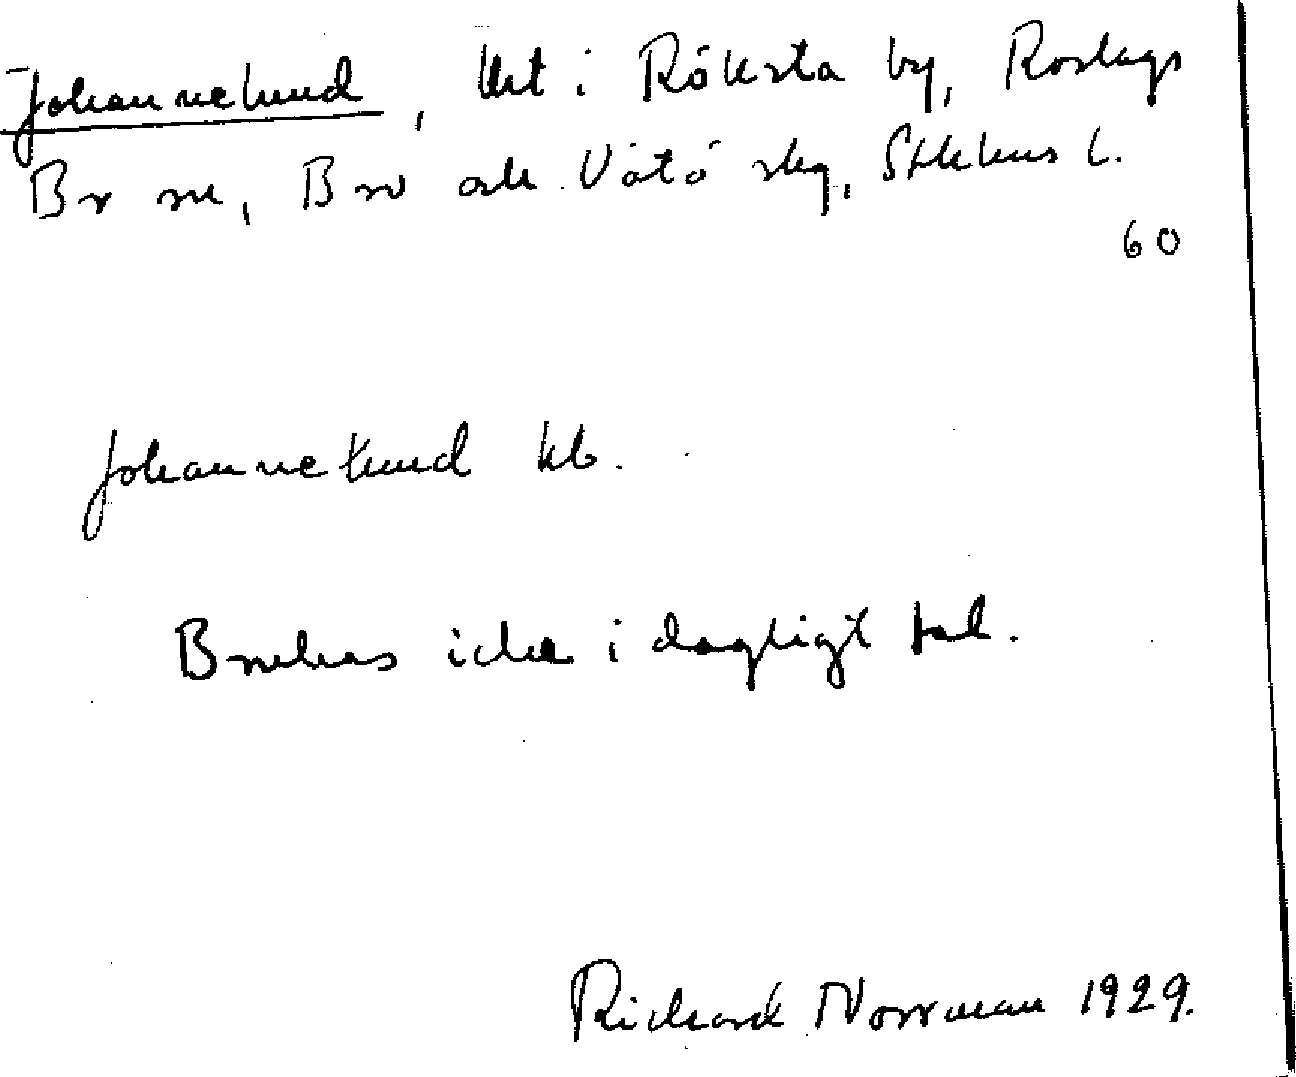 Johannelund, lht i Röksta by, Roslags
Bro sn, Bro och Vätö skg, Sthlms l.
60
Johannelund kb.
Brukas icke i dagligt tal.
Richard Norrman 1929.